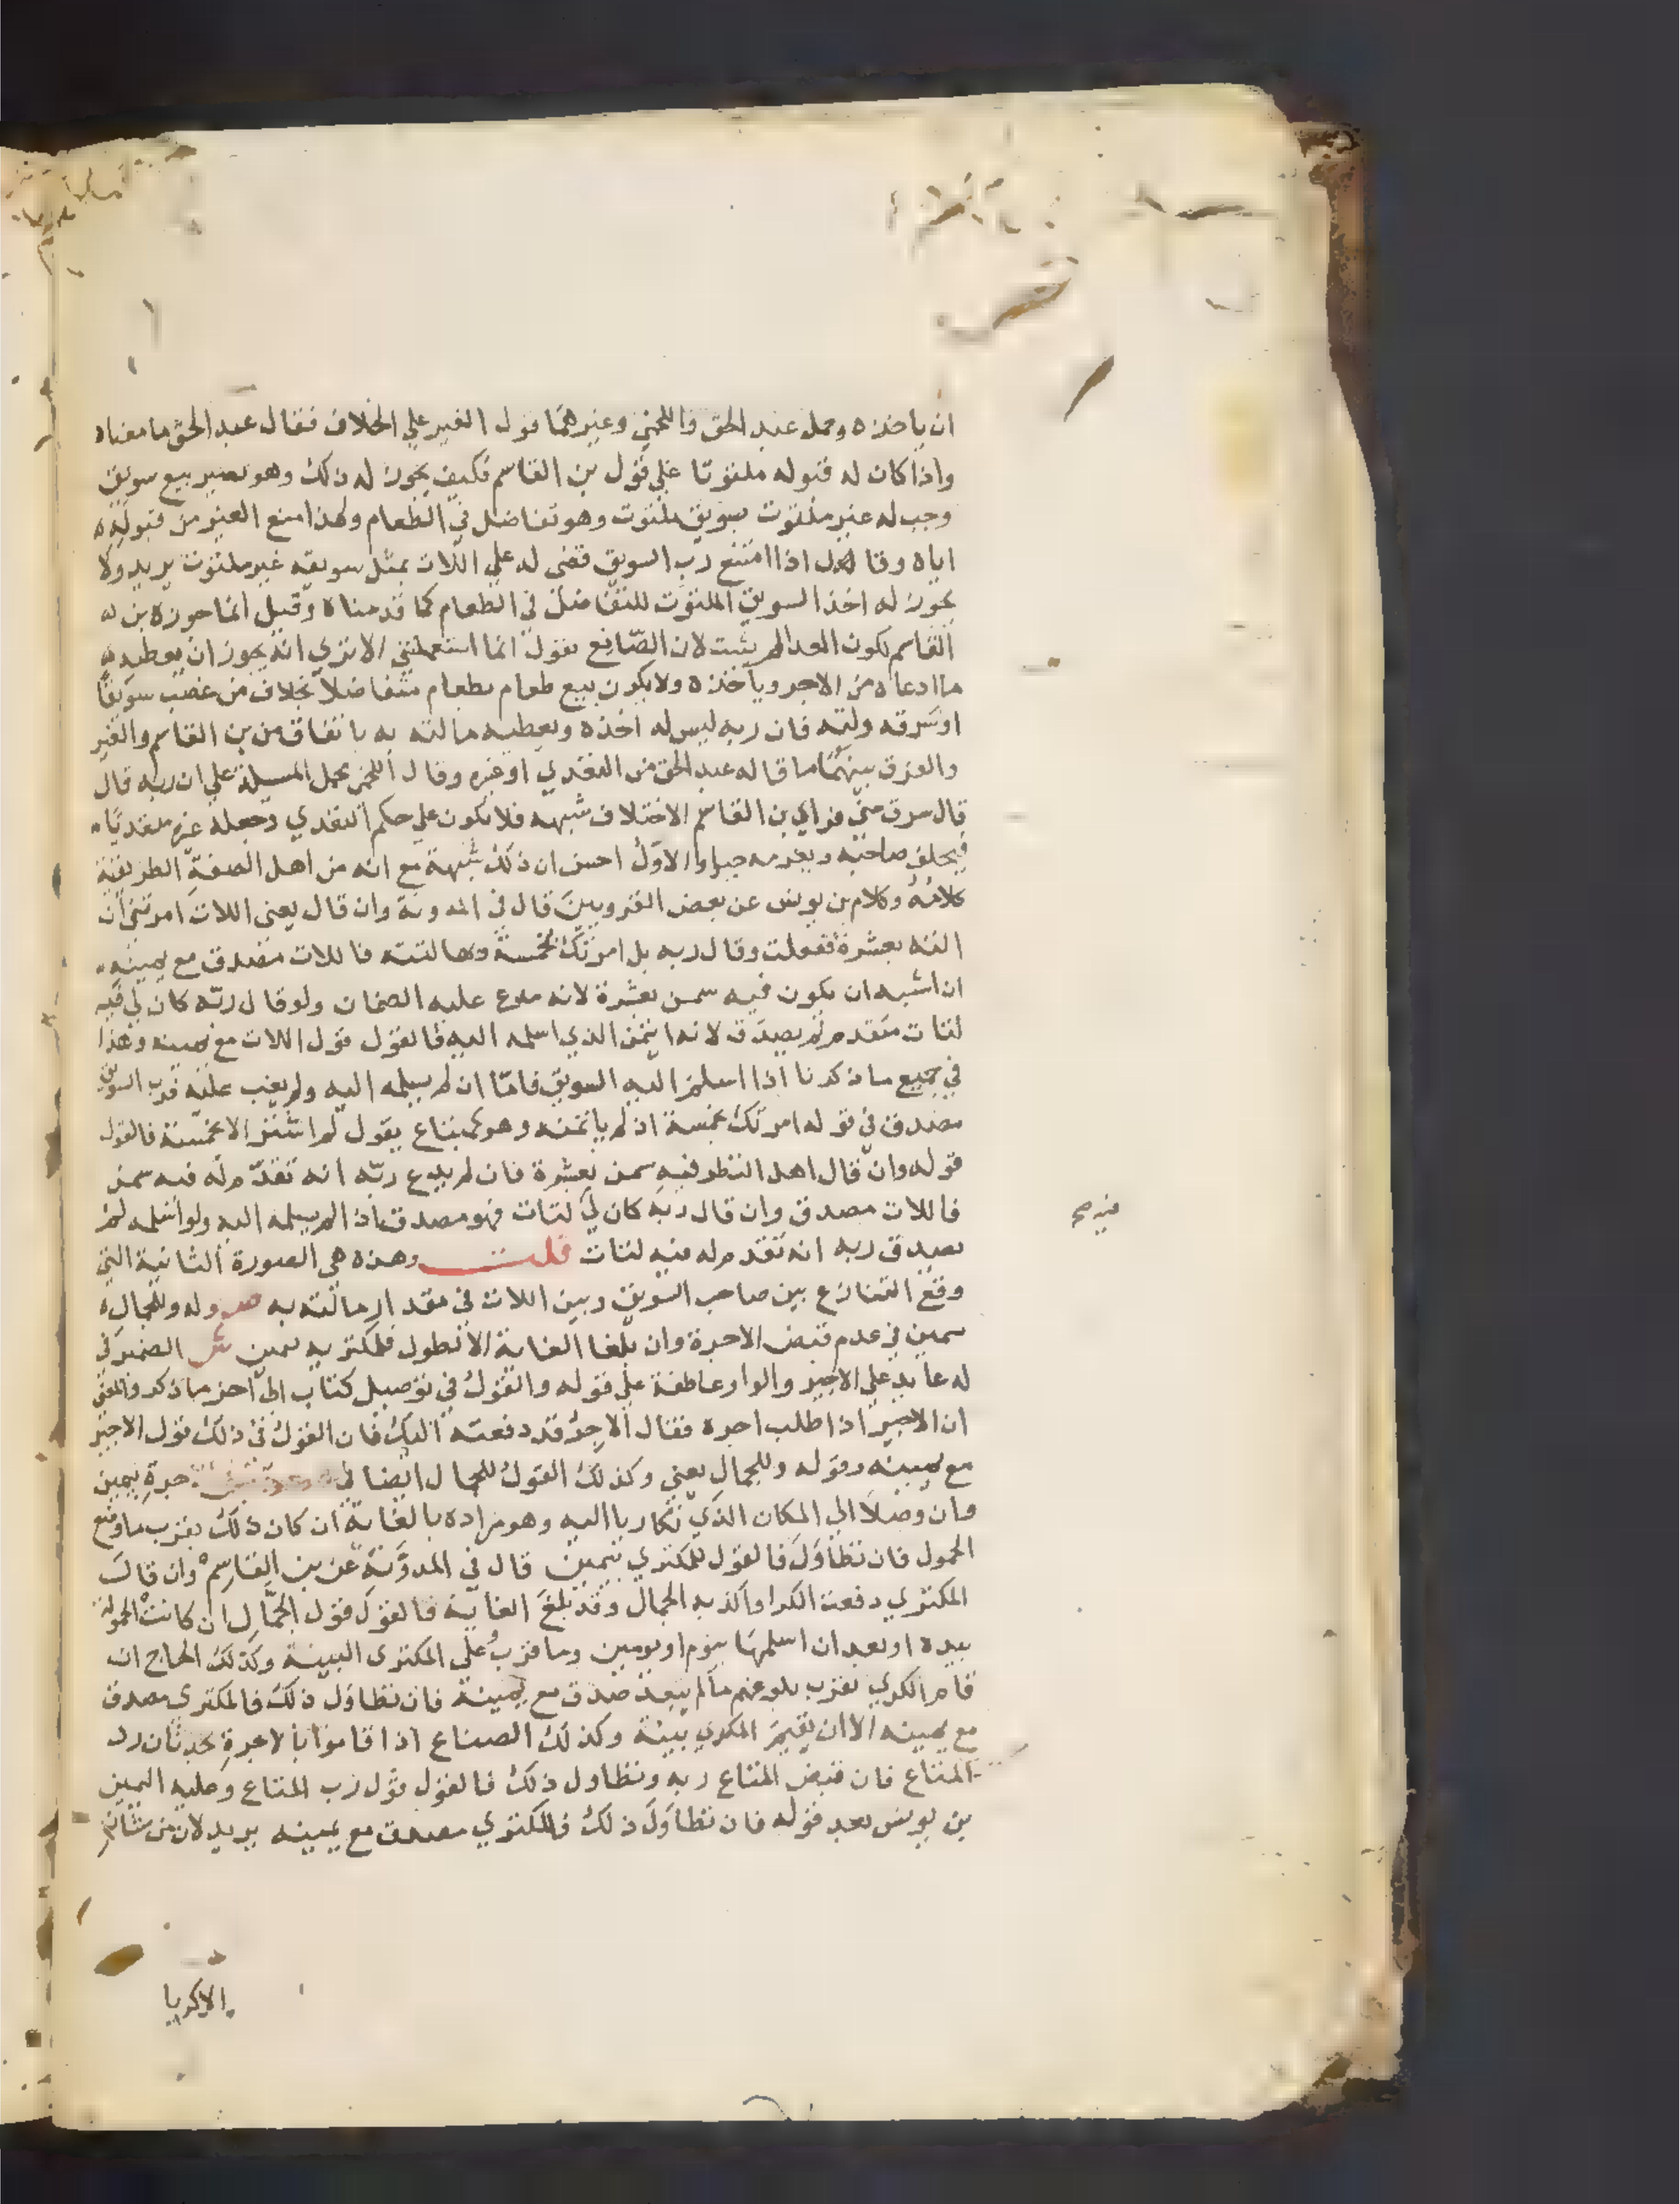 ان ياخذه وحمل عبد الحق واللخمي وغيرهما قول الغير علي الخلاف فقال عبد الحق ما معناه
واذا كان له قبوله ملتوتا علي قول بن القاسم فكيف يجوز له ذلك وهو يصير بيع سويق
وجب له غير ملتوت بسويق ملتوت وهو تفاضل في الطعام ولهذا منع الغير من قبوله
اياه وقال اذا امتنع رب السويق قضي له علي اللات بمثل سويقه غير ملتوت يريد ولا
يجوز له اخذ السويق الملتوت للتفاضل في الطعام كما قدمناه وقيل انما جوزه بن
القاسم لكون العدا لم يثبت لان الصانع يقول انما استعملتني الا تري انه يجوز ان يعطيه
ما ادعاه من الاجر وياخذه ولا يكون بيع طعام بطعام متفاضلا بخلاف من غصب سويقا
او سرقه ولته فان ربه ليس له اخذه ويعطيه ما لته به باتفاق من بن القاسم والغير
والفرق بينهما ما قاله عبد الحق من التعدي او غيره وقال اللخمي محمل المسيلة علي ان ربه قال
قال سرق مني فراي بن القاسم الاختلاف شبهه فلا يكون علي حكم التعدي وجعله غيره متعديا
فيحلف صاحبه ويغرمه جبرا والاول احسن ان ذلك شبهة مع انه من اهل الصنعة الظريفة
كلامه وكلام بن يونس عن بعض القرويين قال في المدونة وان قال يعني اللات امرتني ان
الته بعشرة ففعلت وقال ربه بل امرتك بخمسة وبها لتته فاللات مصدق مع يمينه
ان اشبه ان يكون فيه سمن بعشرة لانه مدع عليه الضمان ولو قال ربه كان لي فيه
لتات متقدم لم يصدق لانه ايتمن الذي اسلمه اليه فالقول قول اللات مع يمينه وهذا
في جميع ما ذكرنا اذا اسلم اليه السويق فاما ان لم يسلمه اليه ولم يغب عليه فرب السويق
مصدق في قوله امرتك بخمسة اذ لم ياتمنه وهو كمبتاع يقول لم اشتر الا بخمسة فالقول
قوله وان قال اهل النظر فيه سمن بعشرة فان لم يدع ربه انه تقدم له فيه سمن
فاللات مصدق وان قال ربه كان لي لتات فهو مصدق اذا لم يسلمه اليه ولو اسلمه لم
فيه صح
يصدق ربه انه تقدم له فيه لتات قلت وهذه هي الصورة الثانية التي
وقع التنازع بين صاحب السويق وبين اللات في مقدار ما لته به ص وله وللجمال
بيمين في عدم قبض الاجرة وان بلغا الغاية الا لطول فلمكتريه بيمين ش الضمير في
له عايد علي الاجير والواو عاطفة علي قوله والقول في توصيل كتاب الي اخر ما ذكر والمعني
ان الاجير اذا طلب اجره فقال الاجر قد دفعته اليك فان القول في ذلك قول الاجير
مع يمينه وقوله وللجمال يعني وكذلك القول للجمال ايضا في اجرة بيمين
وان وصلا الي المكان الذي تكاريا اليه وهو مراده بالغاية ان كان ذلك بقرب ما وضع
الحمول فان تطاول فالقول للمكتري بيمين قال في المدونة عن بن القاسم وان قال
المكتري دفعت الكرا واكذبه الجمال وقد بلغ الغاية فالقول قول الجمال ان كانت الحمولة
بيده او بعد ان اسلمها بيوم او يومين وما قرب وعلي المكتري البينة وكذلك الحاج ان
قام الكري بقرب بلوغهم ما لم يبعد صدق مع يمينه فان تطاول ذلك فالمكتري مصدق
مع يمينه الا ان يقيم المكري بينة وكذلك الصناع اذا قاموا بالاجرة بحدثان رد
المتاع فان قبض المتاع ربه وتطاول ذلك فالقول قول رب المتاع وعليه اليمين
بن يونس بعد قوله فان تطاول ذلك فالمكتري مصدق مع يمينه يريد لان من شان
الاكريا